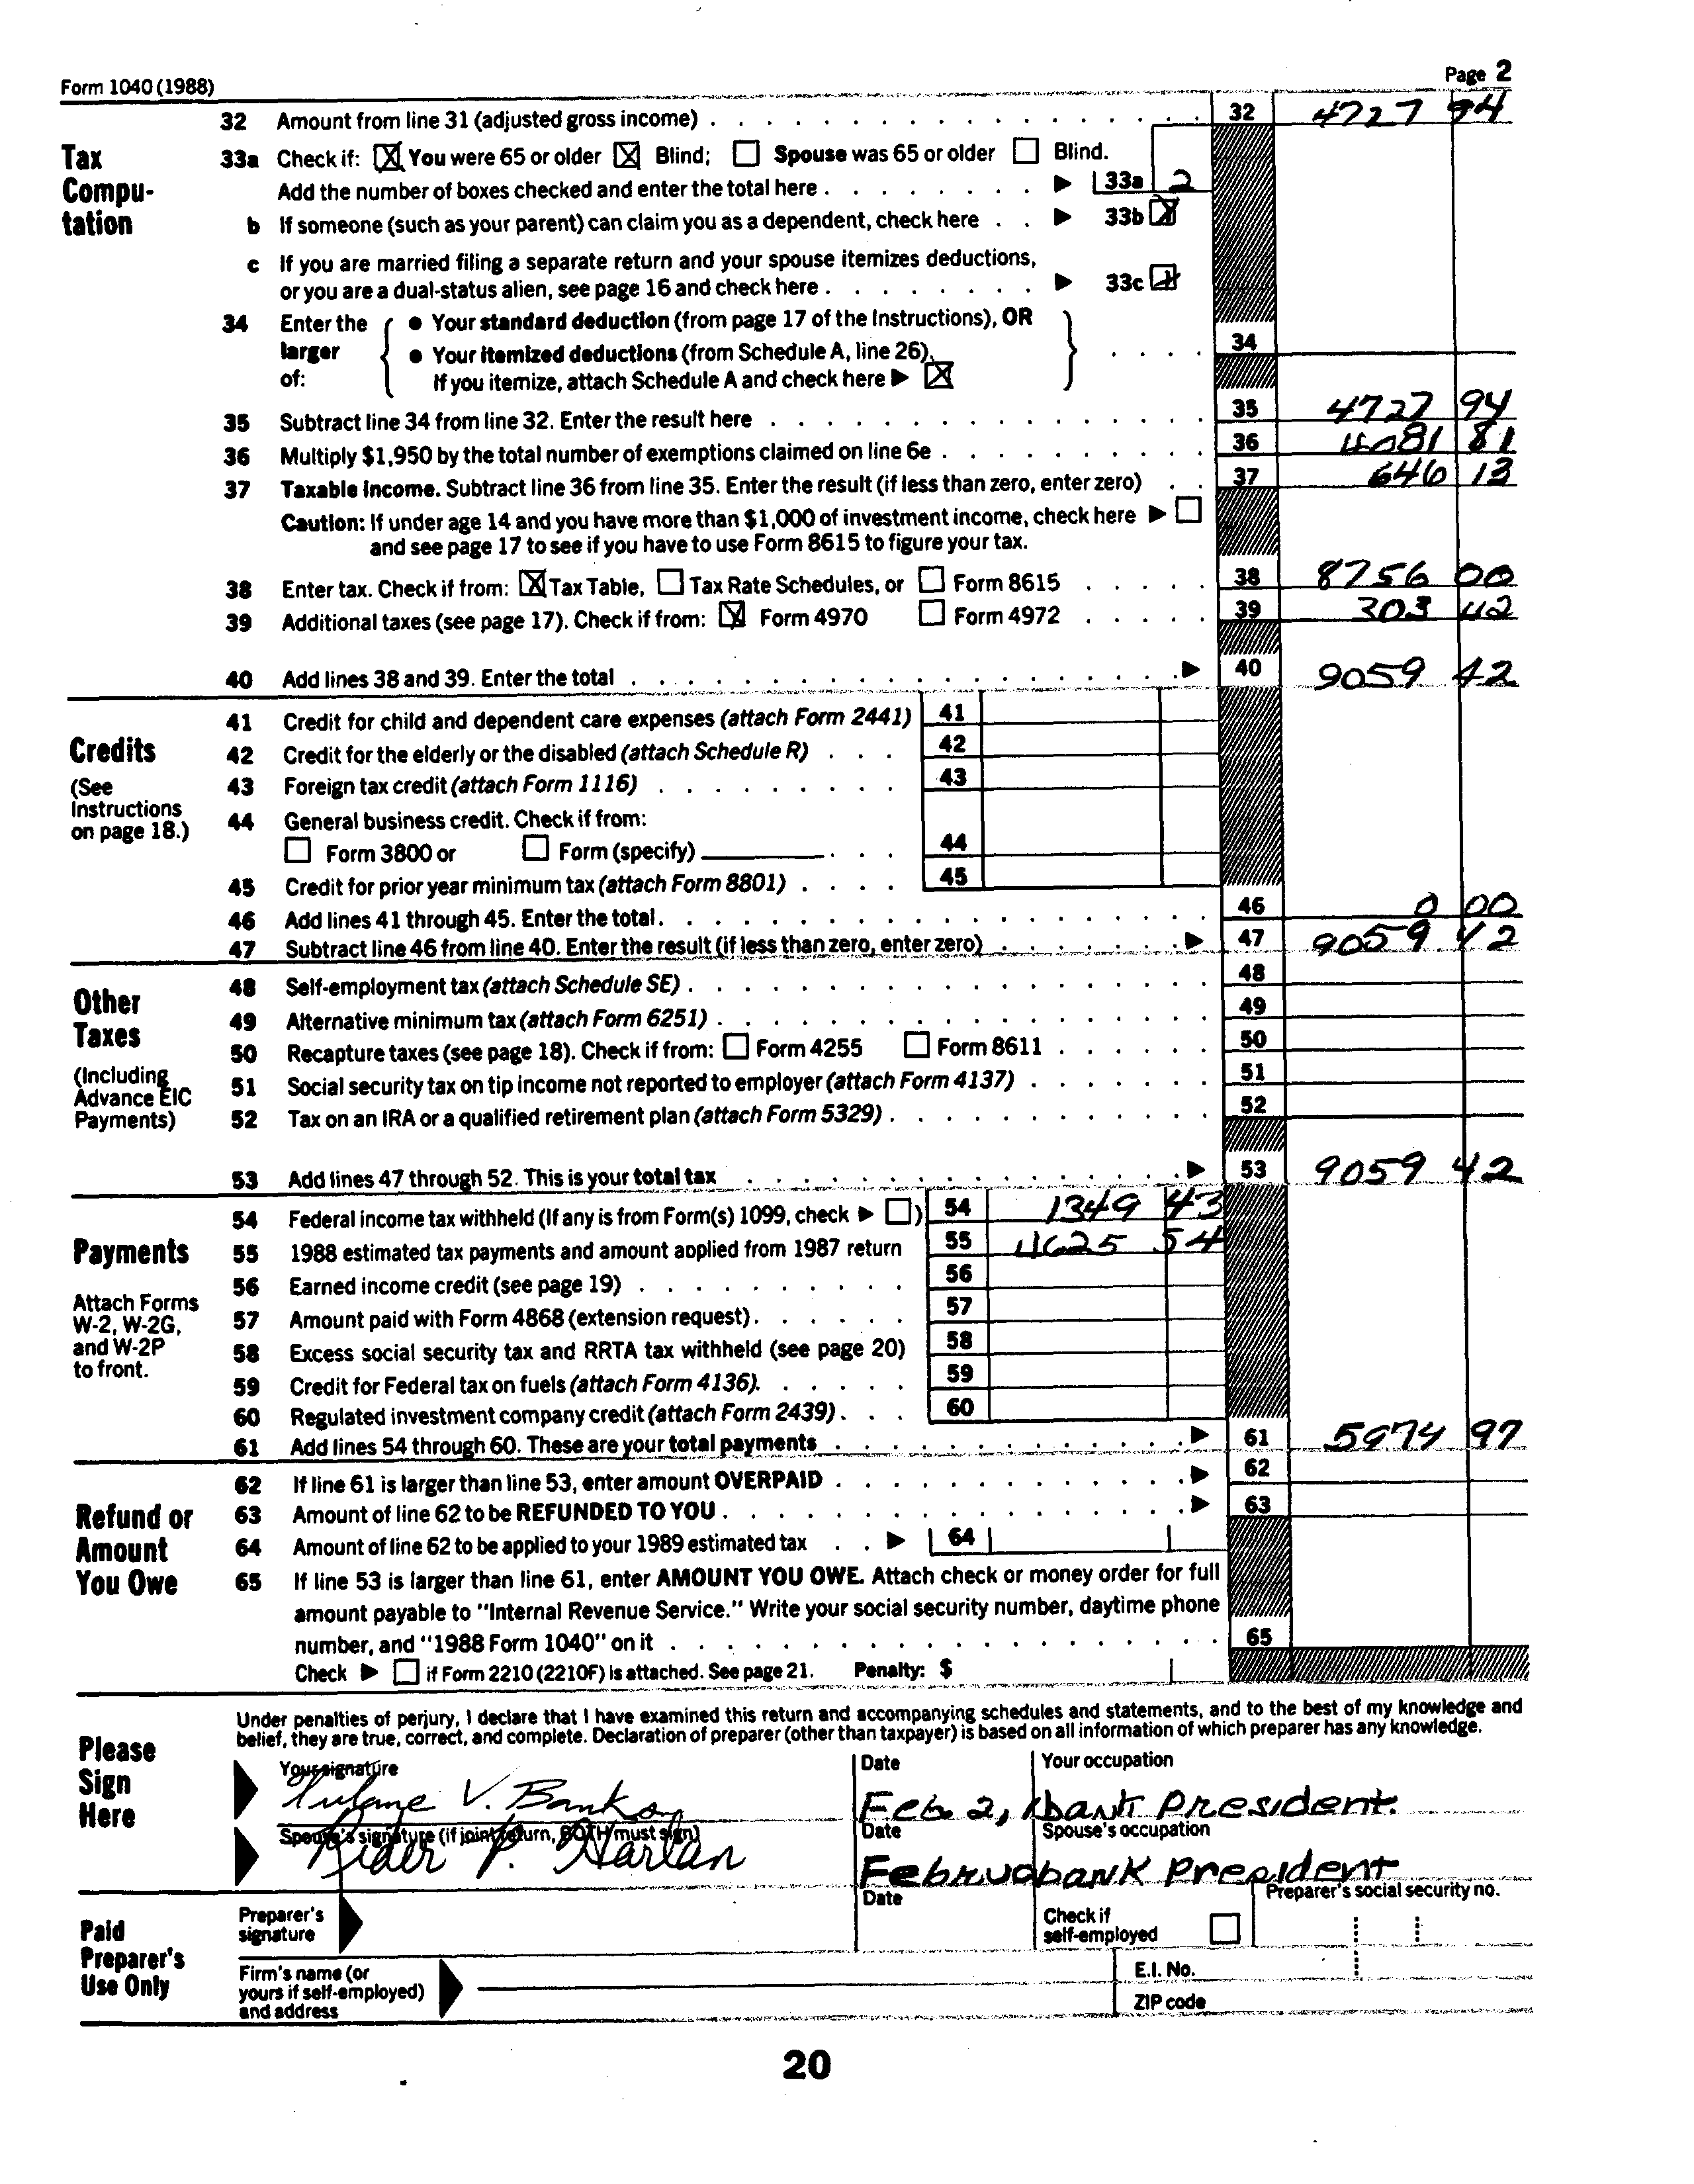 Form 1040 (1988) Page 2
32 Amount from line 31 (adjusted gross income) 32 4727 94
Tax Compu-tation
33a Check if: ☒ You were 65 or older ☒ Blind; ☐ Spouse was 65 or older ☐ Blind.
Add the number of boxes checked and enter the total here ▶ 33a 2
b If someone (such as your parent) can claim you as a dependent, check here ▶ 33b ☒
c If you are married filing a separate return and your spouse itemizes deductions,
or you are a dual-status alien, see page 16 and check here ▶ 33c ☒
34 Enter the larger of: { ● Your standard deduction (from page 17 of the Instructions), OR
● Your itemized deductions (from Schedule A, line 26). } 34
If you itemize, attach Schedule A and check here ▶ ☒
35 Subtract line 34 from line 32. Enter the result here 35 4727 94
36 Multiply $1,950 by the total number of exemptions claimed on line 6e 36 4081 81
37 Taxable income. Subtract line 36 from line 35. Enter the result (if less than zero, enter zero) 37 646 13
Caution: If under age 14 and you have more than $1,000 of investment income, check here ▶ ☐
and see page 17 to see if you have to use Form 8615 to figure your tax.
38 Enter tax. Check if from: ☒ Tax Table, ☐ Tax Rate Schedules, or ☐ Form 8615 38 8756 00
39 Additional taxes (see page 17). Check if from: ☒ Form 4970 ☐ Form 4972 39 303 42
40 Add lines 38 and 39. Enter the total ▶ 40 9059 42
Credits
(See Instructions on page 18.)
41 Credit for child and dependent care expenses (attach Form 2441) 41
42 Credit for the elderly or the disabled (attach Schedule R) 42
43 Foreign tax credit (attach Form 1116) 43
44 General business credit. Check if from:
☐ Form 3800 or ☐ Form (specify) 44
45 Credit for prior year minimum tax (attach Form 8801) 45
46 Add lines 41 through 45. Enter the total 46 0 00
47 Subtract line 46 from line 40. Enter the result (if less than zero, enter zero) ▶ 47 9059 42
Other Taxes
(Including Advance EIC Payments)
48 Self-employment tax (attach Schedule SE) 48
49 Alternative minimum tax (attach Form 6251) 49
50 Recapture taxes (see page 18). Check if from: ☐ Form 4255 ☐ Form 8611 50
51 Social security tax on tip income not reported to employer (attach Form 4137) 51
52 Tax on an IRA or a qualified retirement plan (attach Form 5329) 52
53 Add lines 47 through 52. This is your total tax ▶ 53 9059 42
Payments
Attach Forms W-2, W-2G, and W-2P to front.
54 Federal income tax withheld (If any is from Form(s) 1099, check ▶ ☐) 54 1349 43
55 1988 estimated tax payments and amount applied from 1987 return 55 4625 54
56 Earned income credit (see page 19) 56
57 Amount paid with Form 4868 (extension request) 57
58 Excess social security tax and RRTA tax withheld (see page 20) 58
59 Credit for Federal tax on fuels (attach Form 4136) 59
60 Regulated investment company credit (attach Form 2439) 60
61 Add lines 54 through 60. These are your total payments ▶ 61 5974 97
Refund or Amount You Owe
62 If line 61 is larger than line 53, enter amount OVERPAID ▶ 62
63 Amount of line 62 to be REFUNDED TO YOU ▶ 63
64 Amount of line 62 to be applied to your 1989 estimated tax ▶ 64
65 If line 53 is larger than line 61, enter AMOUNT YOU OWE. Attach check or money order for full
amount payable to "Internal Revenue Service." Write your social security number, daytime phone
number, and "1988 Form 1040" on it 65
Check ▶ ☐ if Form 2210 (2210F) is attached. See page 21. Penalty: $
Please Sign Here
Under penalties of perjury, I declare that I have examined this return and accompanying schedules and statements, and to the best of my knowledge and
belief, they are true, correct, and complete. Declaration of preparer (other than taxpayer) is based on all information of which preparer has any knowledge.
Your signature Date Your occupation
V. Banks Feb. 2, bank President.
Spouse's signature (if joint return, BOTH must sign) Date Spouse's occupation
Rider P. Harlan bank President
Paid Preparer's Use Only
Preparer's signature Date Check if self-employed ☐ Preparer's social security no.
Firm's name (or yours if self-employed) and address E.I. No.
ZIP code
20